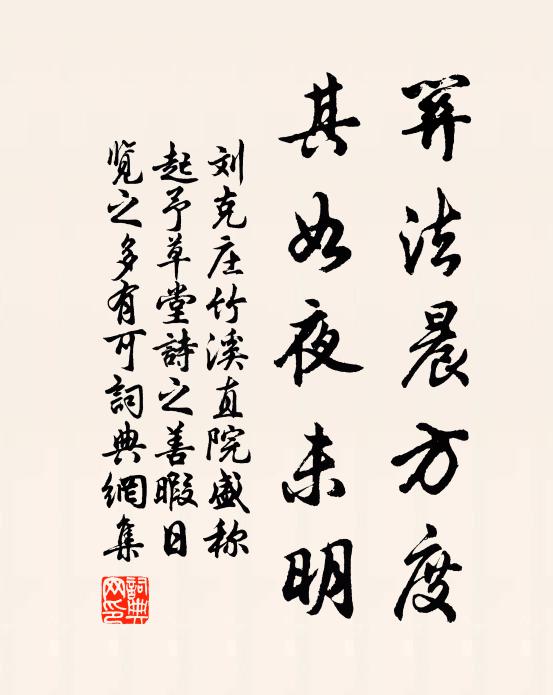 關法晨方度
其如夜未明
刘克庄竹溪直院盛称
起予草堂詩之善暇日
覽之多有可詞典網集
詞典
网印